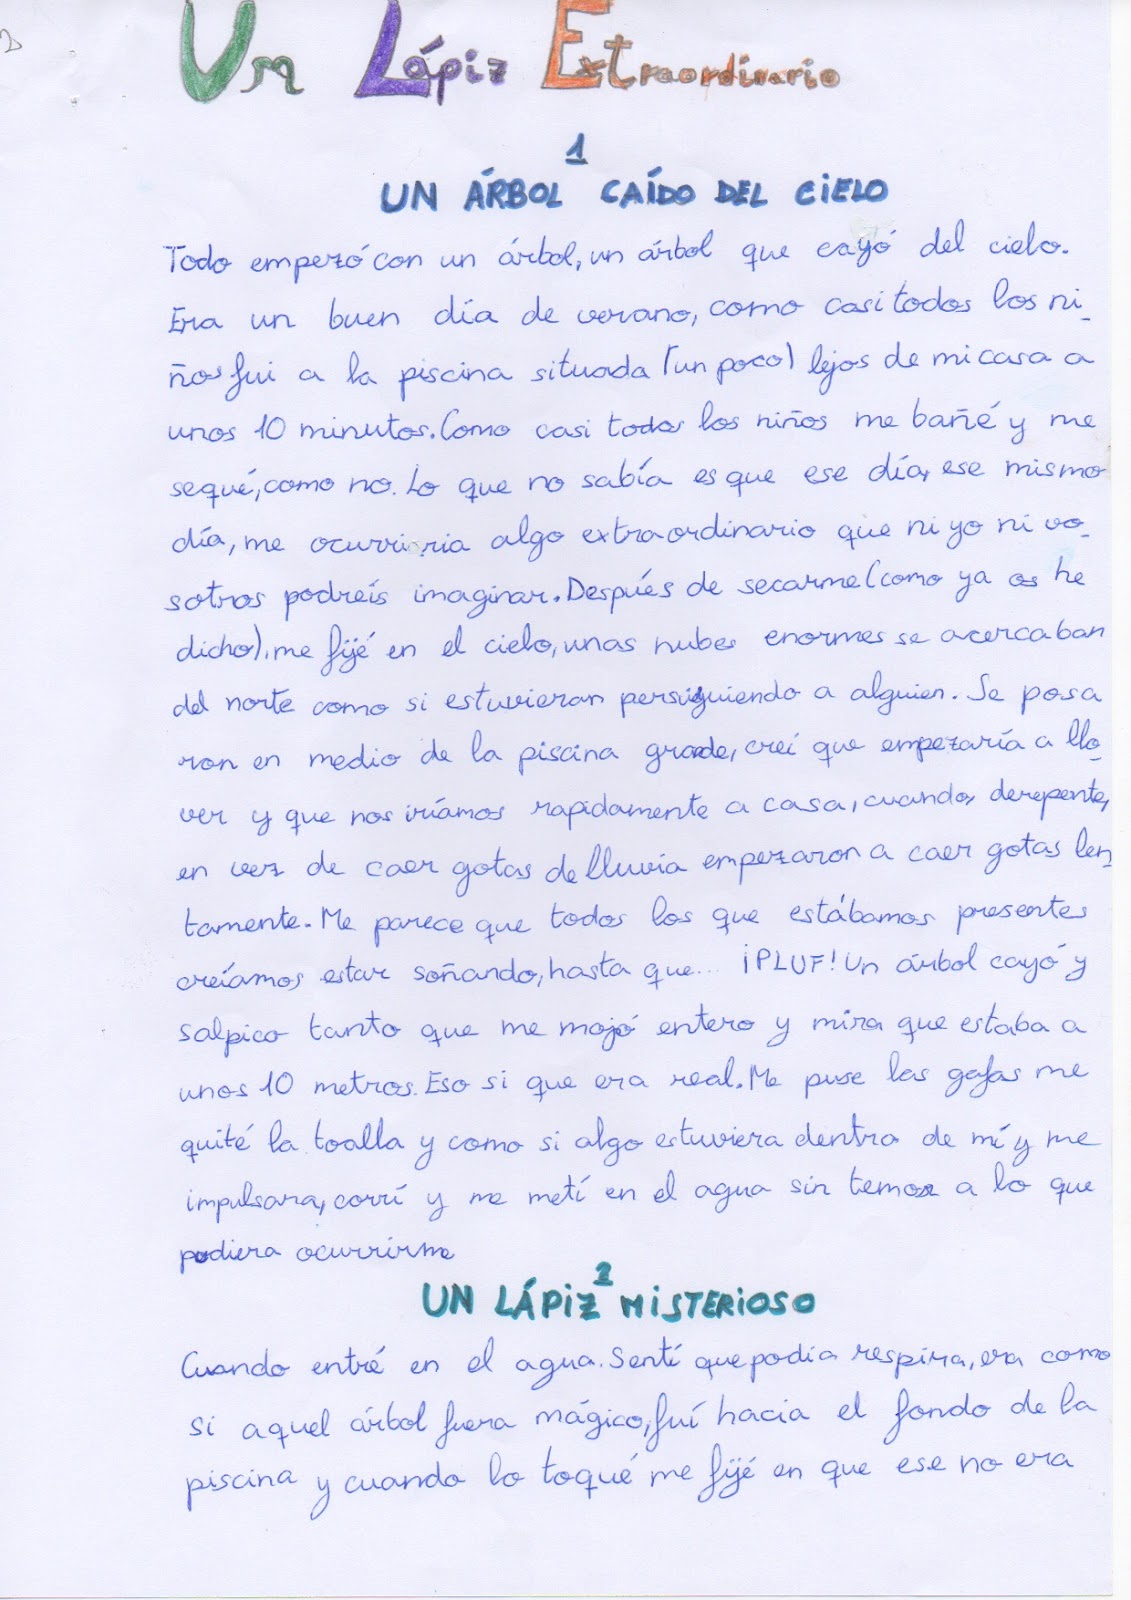 Un Lápiz Extraordinario
1
UN ÁRBOL CAÍDO DEL CIELO
Todo empezó con un árbol, un árbol que cayó del cielo.
Era un buen día de verano, como casi todos los ni_
ños fui a la piscina situada (un poco) lejos de mi casa a
unos 10 minutos. Como casi todos los niños me bañé y me
sequé, como no. Lo que no sabía es que ese día, ese mismo
día, me ocurriria algo extraordinario que ni yo ni vo_
sotros podreís imaginar. Despúes de secarme (como ya os he
dicho), me fijé en el cielo, unas nubes enormes se acercaban
del norte como si estuvieran persiguiendo a alguien. Se posa
ron en medio de la piscina grande, creí que empezaría a llo_
ver y que nos iríamos rapidamente a casa, cuando, derepente,
en vez de caer gotas de lluvia empezaron a caer gotas len_
tamente. Me parece que todos los que estábamos presentes
creíamos estar soñando, hasta que... ¡PLUF! Un árbol cayó y
salpico tanto que me mojó entero y mira que estaba a
unos 10 metros. Eso si que era real. Me puse las gafas me
quité la toalla y como si algo estuviera dentro de mí y me
impulsara, corrí y me metí en el agua sin temor a lo que
pudiera ocurrirme
2
UN LÁPIZ MISTERIOSO
Cuando entré en el agua. Sentí que podia respira, era como
si aquel árbol fuera mágico, fuí hacia el fondo de la
piscina y cuando lo toqué me fijé en que ese no era